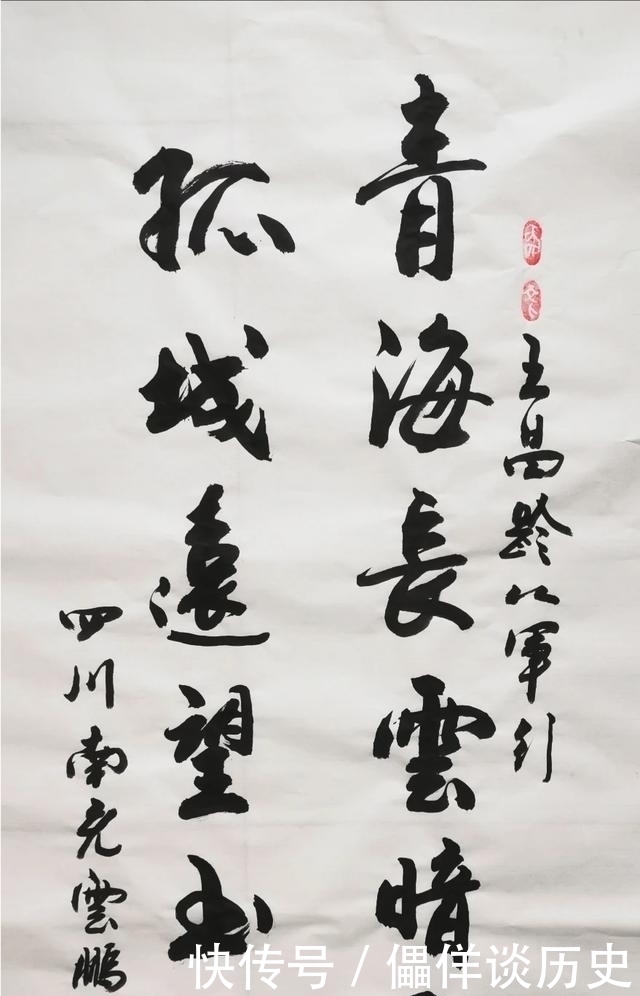 王昌龄从军行
青海長雲暗
孤城遠望玉
四川南充雲鵬
快传号 / 儡佯谈历史